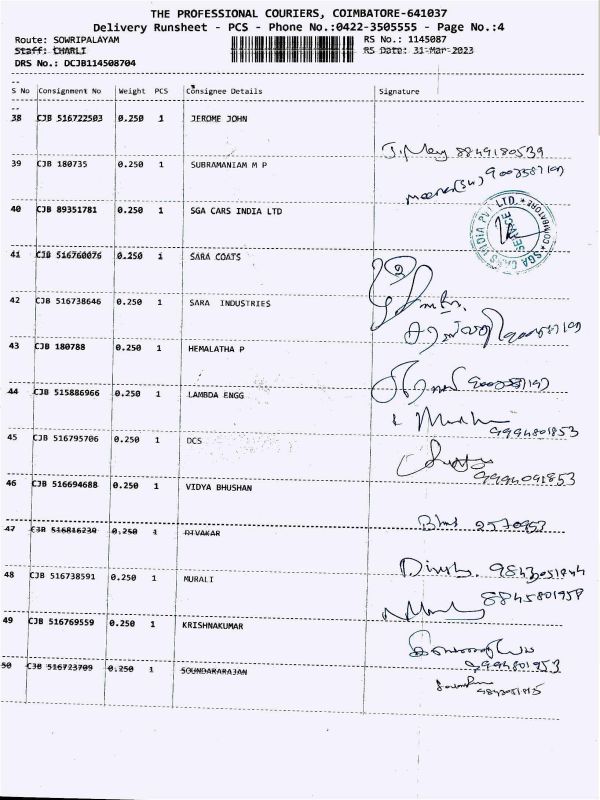 THE PROFESSIONAL COURIERS, COIMBATORE-641037
Delivery Runsheet - PCS - Phone No.:0422-3505555 - Page No.:4
Route: SOWRIPALAYAM RS No.: 1145087
Staff: CHARLI RS Date: 31-Mar-2023
DRS No.: DCJB114508704
S No Consignment No Weight PCS Consignee Details Signature
38 CJB 516722503 0.250 1 JEROME JOHN
8849180539
39 CJB 180735 0.250 1 SUBRAMANIAM M P
40 CJB 89351781 0.250 1 SGA CARS INDIA LTD
SGA CARS INDIA PVT LTD. ★ COIMBATORE ★
41 CJB 516760076 0.250 1 SARA COATS
42 CJB 516738646 0.250 1 SARA INDUSTRIES
43 CJB 180788 0.250 1 HEMALATHA P
44 CJB 515886966 0.250 1 LAMBDA ENGG
9994801853
45 CJB 516795706 0.250 1 DCS
9994091853
46 CJB 516694688 0.250 1 VIDYA BHUSHAN
2570953
47 CJB 516816230 0.250 1 DIVAKAR
48 CJB 516738591 0.250 1 MURALI
8845801958
49 CJB 516769559 0.250 1 KRISHNAKUMAR
9994801953
50 CJB 516723709 0.250 1 SOUNDARARAJAN